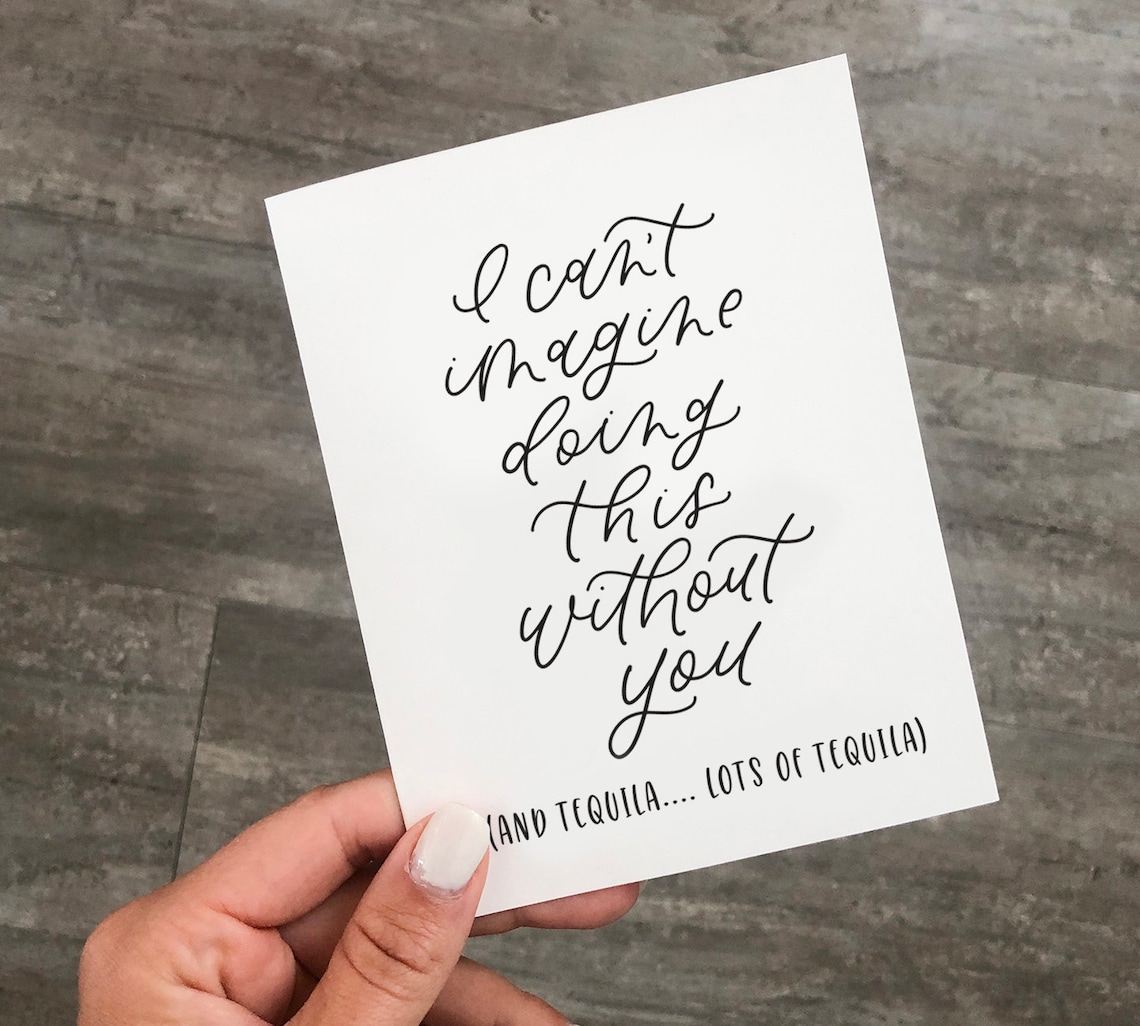 I can't
imagine
doing
this
without
you
(AND TEQUILA.... LOTS OF TEQUILA)